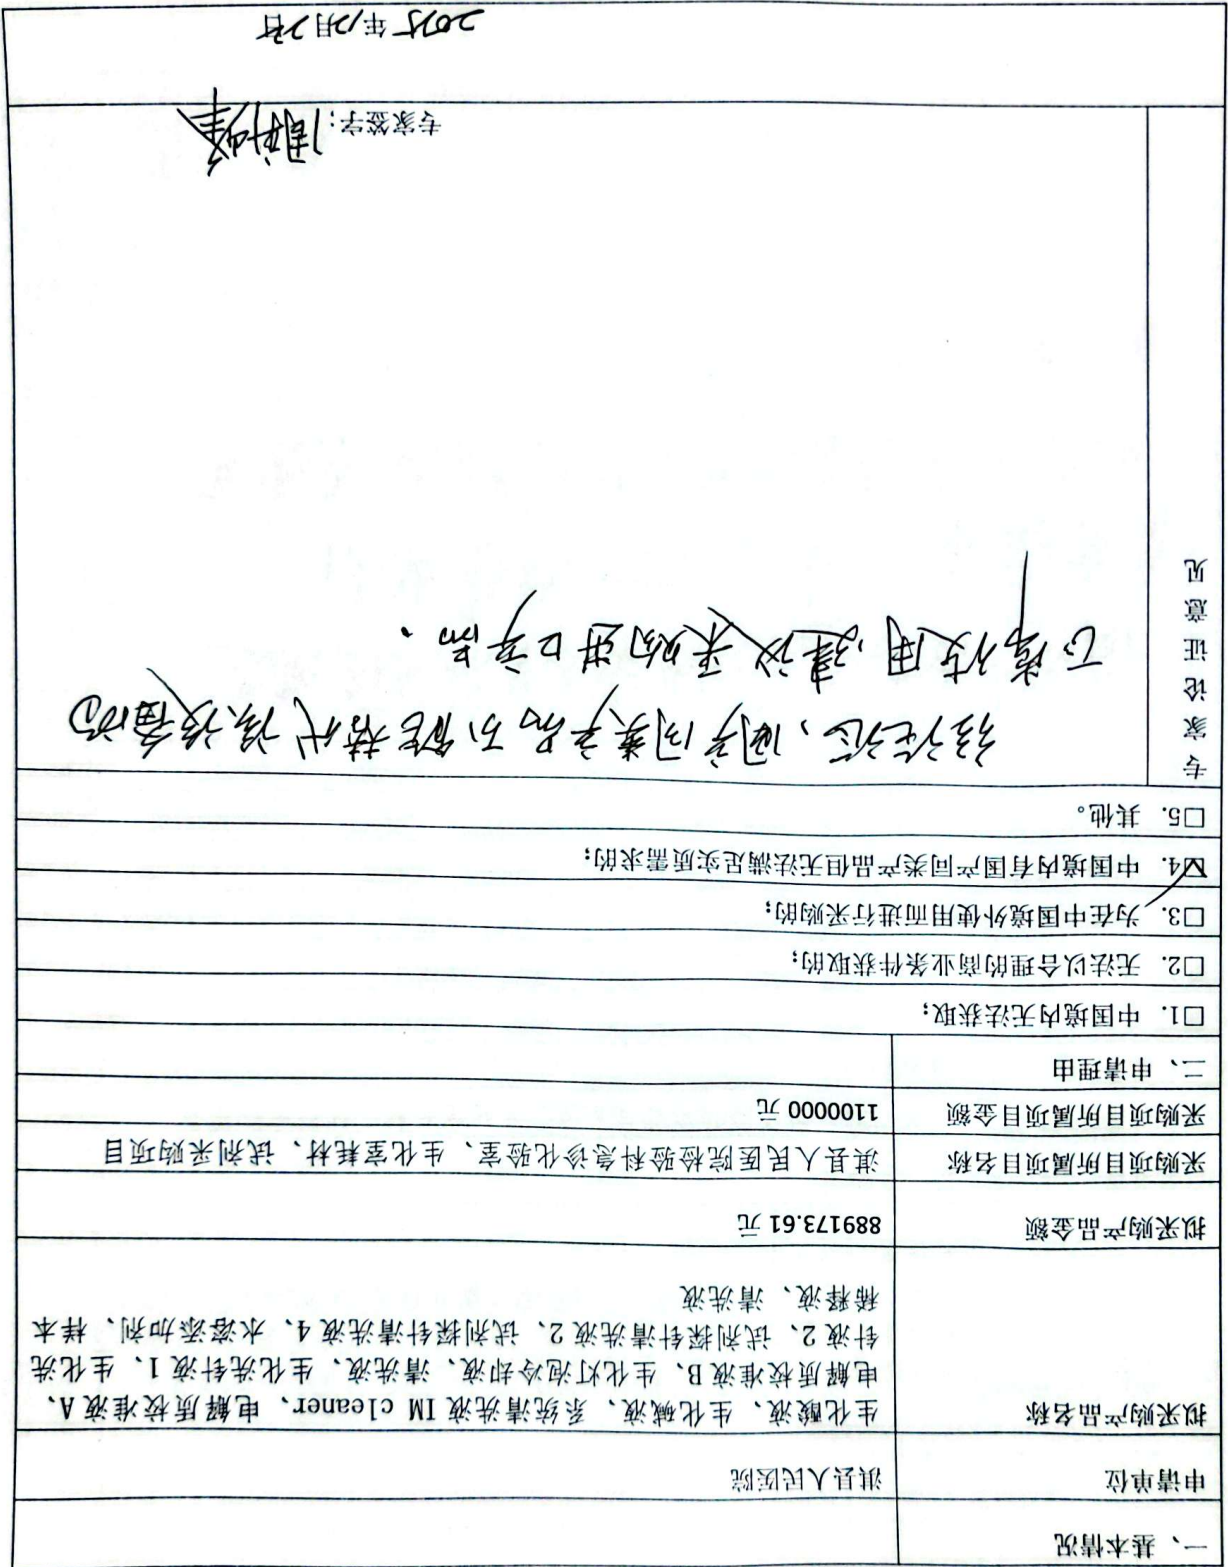 一、基本情况
申请单位 淇县人民医院
拟采购产品名称 生化酸液、生化碱液、系统清洗液 IM cleaner、电解质校准液 A、
电解质校准液 B、生化灯泡冷却液、清洗液、生化洗针液 1、生化洗
针液 2、试剂探针清洗液 2、试剂探针清洗液 4、水浴添加剂、样本
稀释液、清洗液
拟采购产品金额 889173.61 元
采购项目所属项目名称 淇县人民医院检验科急诊化验室、生化室耗材、试剂采购项目
采购项目所属项目金额 1100000 元
二、申请理由
□1. 中国境内无法获取;
□2. 无法以合理的商业条件获取的;
□3. 为在中国境外使用而进行采购的;
☑4. 中国境内有国产同类产品但无法满足实质需求的;
□5. 其他。
专家论证意见
经论证、国产同类产品不能替代该设备的
正常使用,建议采购进口产品。
专家签字:
2025年12月2日